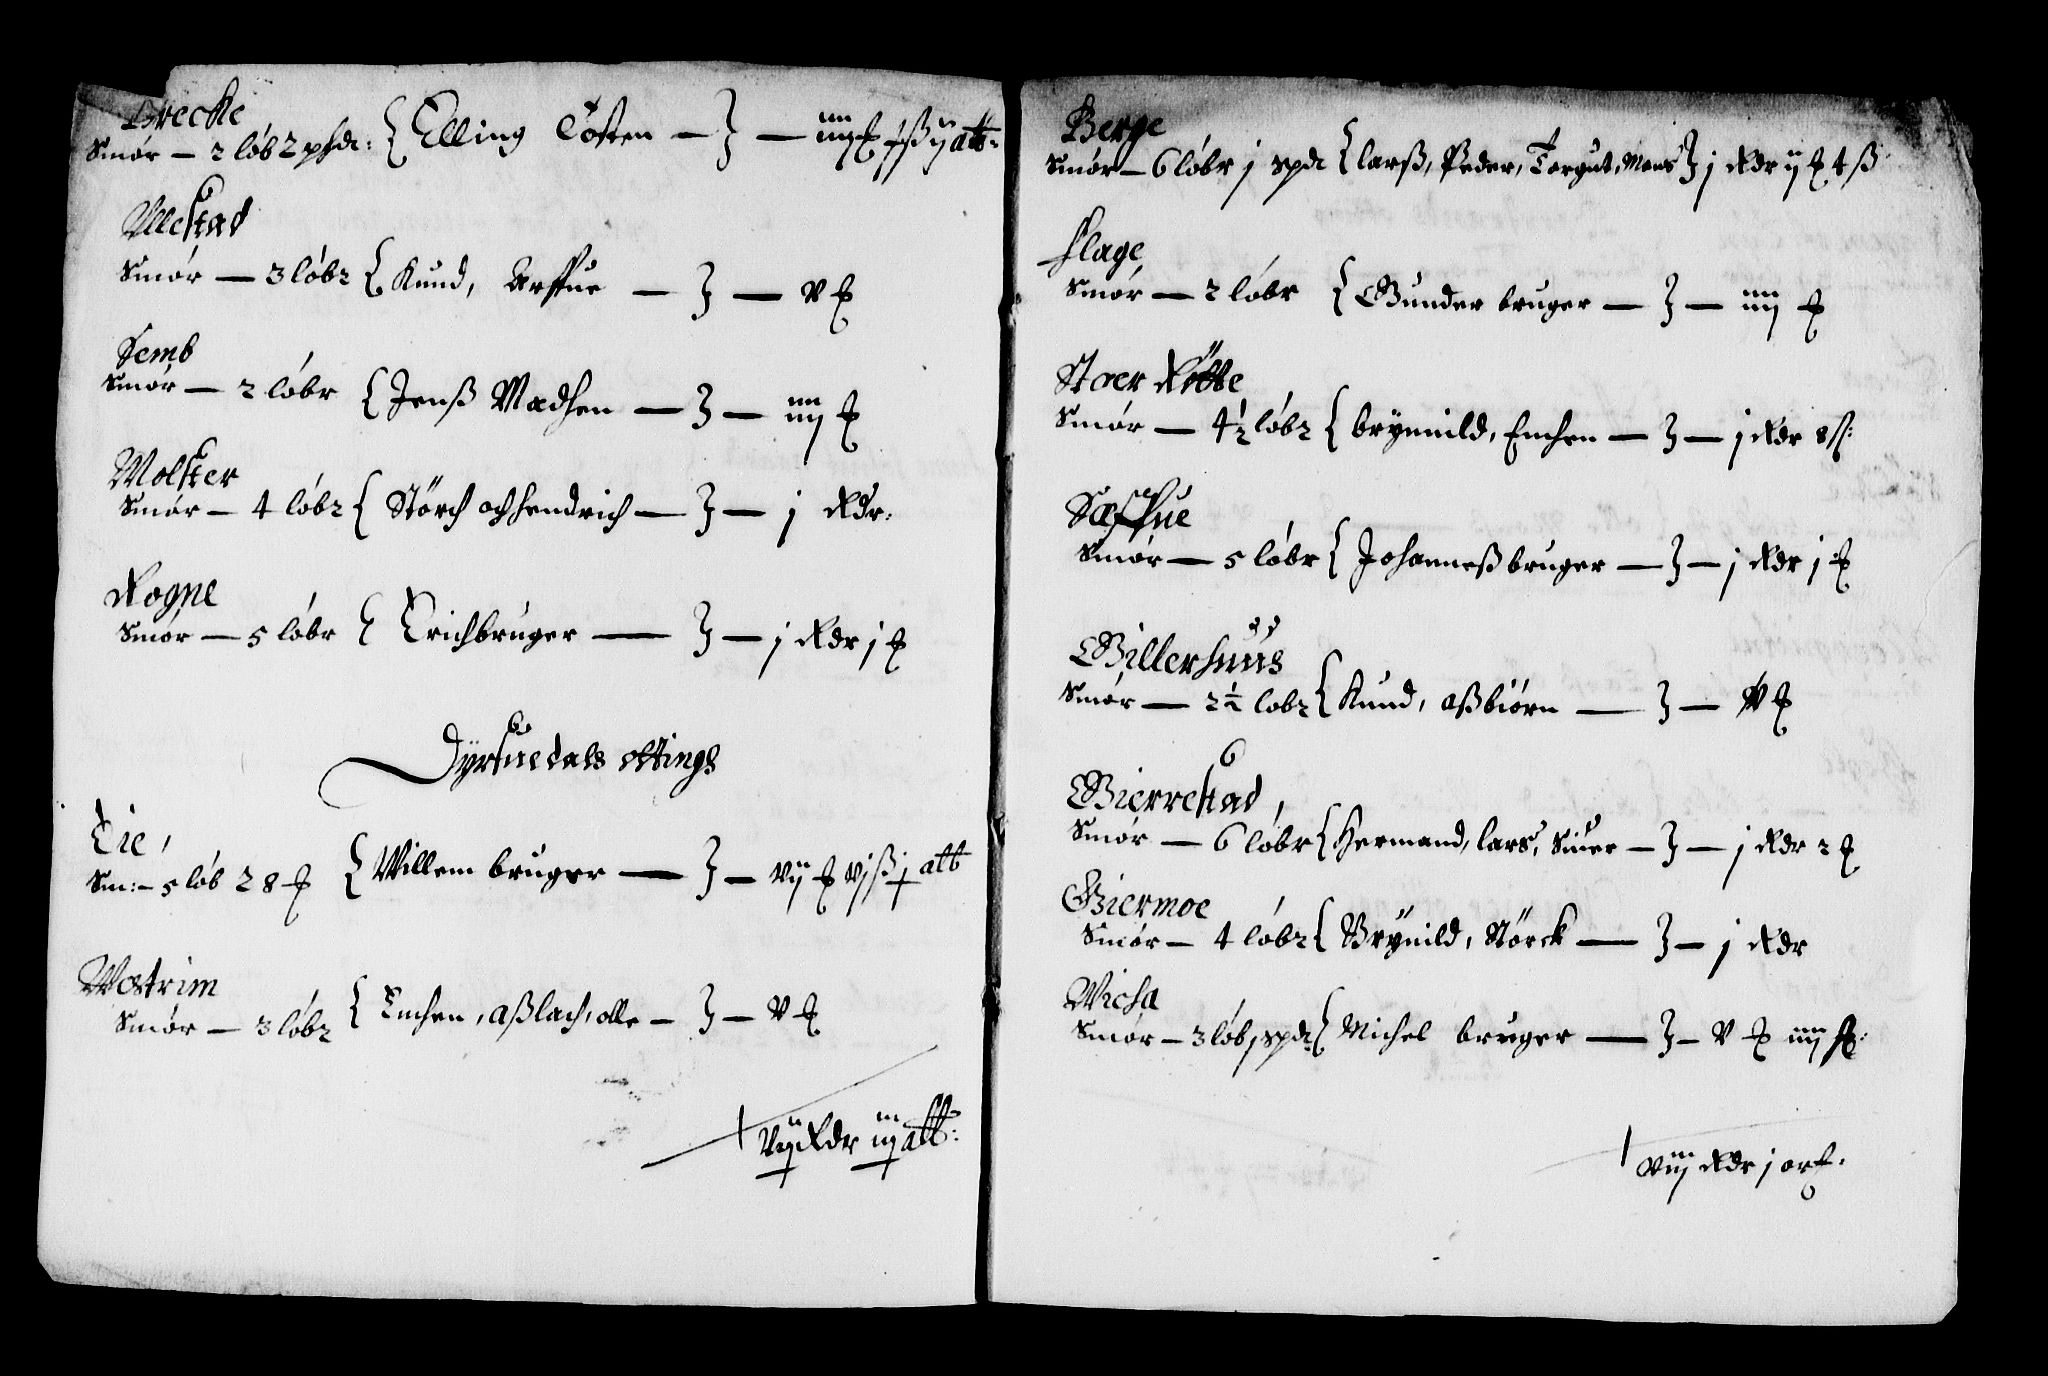 Brecke
Smór — 2 lób 2 phd: { Elling Tosten — } — iiij £ j ß ij alb:
Vllestad
Smór — 3 lóbr { Knud, Arffue — } — v £
Semb
Smór — 2 lóbr { Jenß Madsen — } — iiij £
Molster
Smór — 4 lóbr { Störch och hendrich — } — j Rdr:
Rogne
Smór — 5 lóbr { Erich bruger — } — j Rdr j £
Dÿrsuedals ottings
Tie,
Sm: — 5 lób 28 £ { Willem bruger — } — vij £ vj ß j alb
Wostrim
Smór — 3 lóbr { Enchen, aßlach, olle — } — v £
vij Rdr iij alb:
Berge
Smór — 6 lóbr j spd { larß, Peder, Torgut, Mons } j Rdr ij £ 4 ß
flage
Smór — 2 lóbr { Gunder bruger — } — iiij £
Stoer Röthe
Smór — 4½ lóbr { brynnild, Enchen — } — j Rdr 8 ß:
Sæffue
Smór — 5 lóbr { Johanneß bruger — } — j Rdr j £
Gillerhuus
Smór — 2½ lobr { Knud, aßbiórn — } — v £
Gierrestad,
Smór — 6 lóbr { Hermand, lars, Siuer — } — j Rdr 2 £
Giermoe
Smór — 4 lóbr { Brÿnild, Störck — } — j Rdr
Wicha
Smór — 3 lób j spd { Michel bruger — } — v £ iiij ß:
viij Rdr j ort: